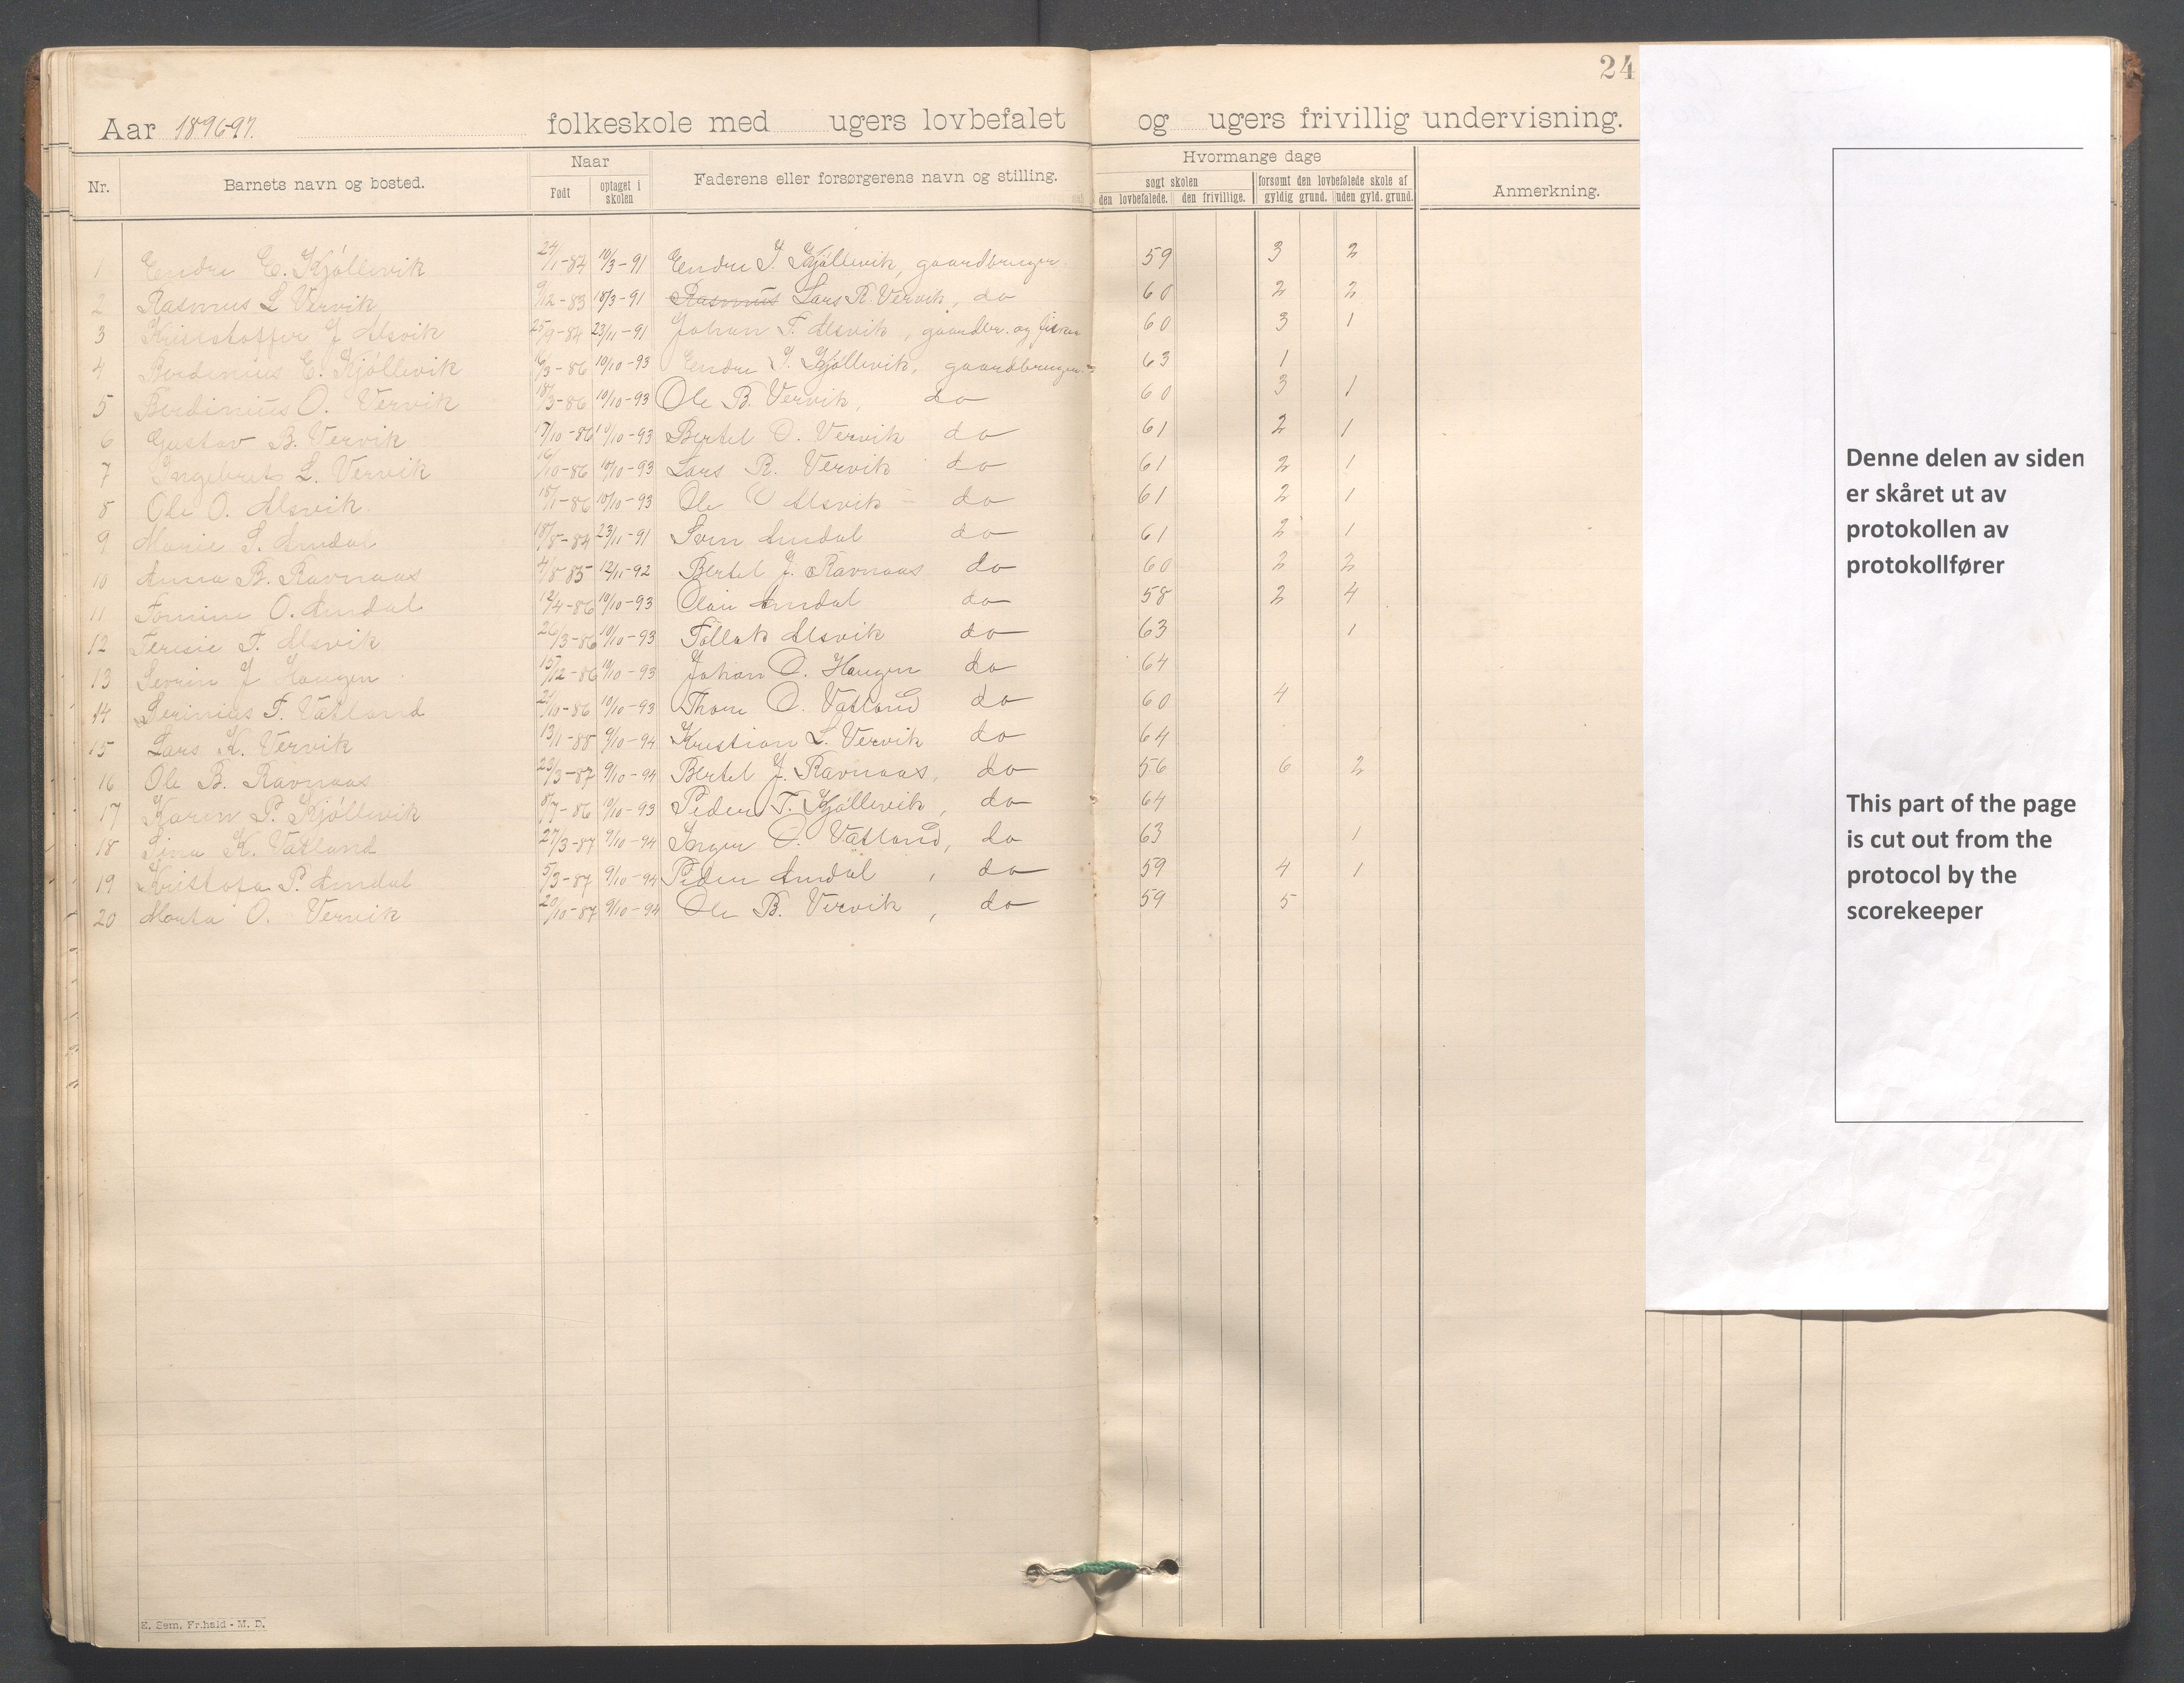 24
Aar 1896-97. folkeskole med ugers lovbefalet og ugers frivillig undervisning.
Nr. Barnets navn og bosted. Naar Født optaget i skolen Faderens eller forsørgerens navn og stilling. Hvormange dage søgt skolen den lovbefalede. den frivillige. forsømt den lovbefalede skole af gyldig grund. uden gyld. grund. Anmerkning.
1 Endre E. Kjøllevik 24/1-84 10/3-91 Endre I. Kjøllevik, gaardbruger 59 3 2
2 Rasmus L Vervik 9/12-83 18/3-91 Rasmus Lars R. Vervik, do 60 2 2
3 Kristoffer J Alsvik 25/9-84 23/11-91 Johan T. Alsvik, gaardbr. og fisker 60 3 1
4 Berdinius E. Kjøllevik 16/3-86 10/10-93 Endre I. Kjøllevik, gaardbruger 63 1
5 Berdinius O. Vervik 18/3-86 10/10-93 Ole B. Vervik, do 60 3 1
6 Gustav B. Vervik 17/10-86 10/10-93 Bertel O. Vervik do 61 2 1
7 Ingebret L. Vervik 16/10-86 10/10-93 Lars R. Vervik do 61 2 1
8 Ole O. Alsvik 18/1-86 10/10-93 Ole O Alsvik do 61 2 1
9 Marie S. Amdal 18/8-84 23/11-91 Sven Amdal do 61 2 1
10 Anna B. Ravnaas 4/8-85 12/11-92 Bertel J. Ravnaas do 60 2 2
11 Tomine O. Amdal 12/4-86 10/10-93 Olai Amdal do 58 2 4
12 Teresie T. Alsvik 26/3-86 10/10-93 Tollak Alsvik do 63 1
13 Sevrin J Haugen 15/12-86 10/10-93 Johan O. Haugen do 64
14 Serinius T. Vatland 21/10-86 10/10-93 Thore O. Vatland do 60 4
15 Lars K. Vervik 13/1-88 9/10-94 Kristian L. Vervik do 64
16 Ole B. Ravnaas 23/3-87 9/10-94 Bertel J. Ravnaas, do 56 6 2
17 Karen P. Kjøllevik 8/7-86 10/10-93 Peder T. Kjøllevik, do 64
18 Sina K. Vatland 27/3-87 9/10-94 Inger O. Vatland, do 63 1
19 Kristofa P. Amdal 5/3-87 9/10-94 Peder Amdal, do 59 4 1
20 Marta O. Vervik 20/10-87 9/10-94 Ole B. Vervik, do 59 5
Denne delen av siden
er skåret ut av
protokollen av
protokollfører
This part of the page
is cut out from the
protocol by the
scorekeeper
E. Sem. Fr.hald - M. D.